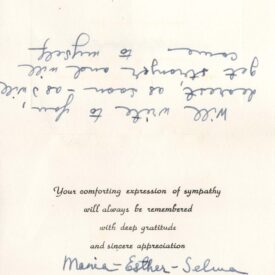 Will write to you,
dearest, as soon - as I will
get stronger and will
come to myself
Your comforting expression of sympathy
will always be remembered
with deep gratitude
and sincere appreciation
Mania-Esther-Selma